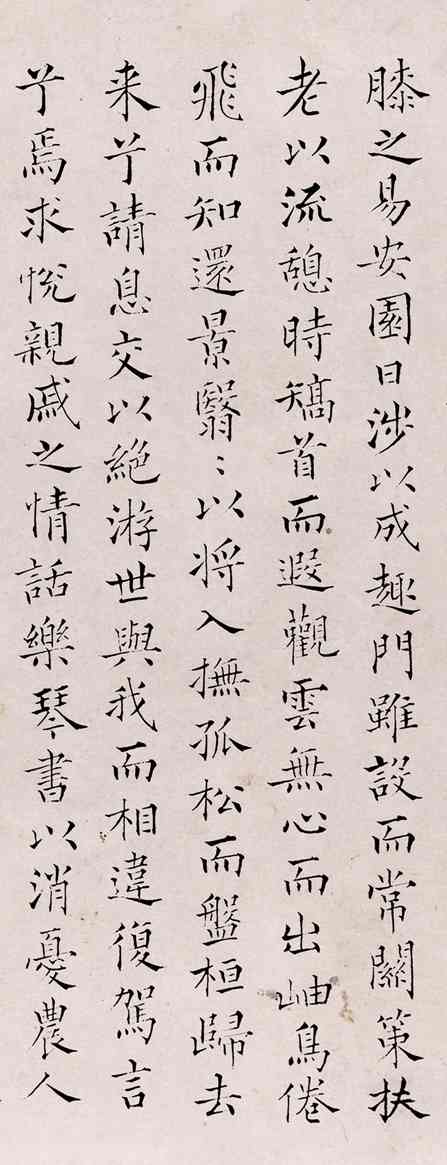 膝之易安園日涉以成趣門雖設而常關策扶
老以流憩時矯首而遐觀雲無心而出岫鳥倦
飛而知還景翳〻以將入撫孤松而盤桓歸去
来兮請息交以絶游世與我而相違復駕言
兮焉求悅親戚之情話樂琴書以消憂農人